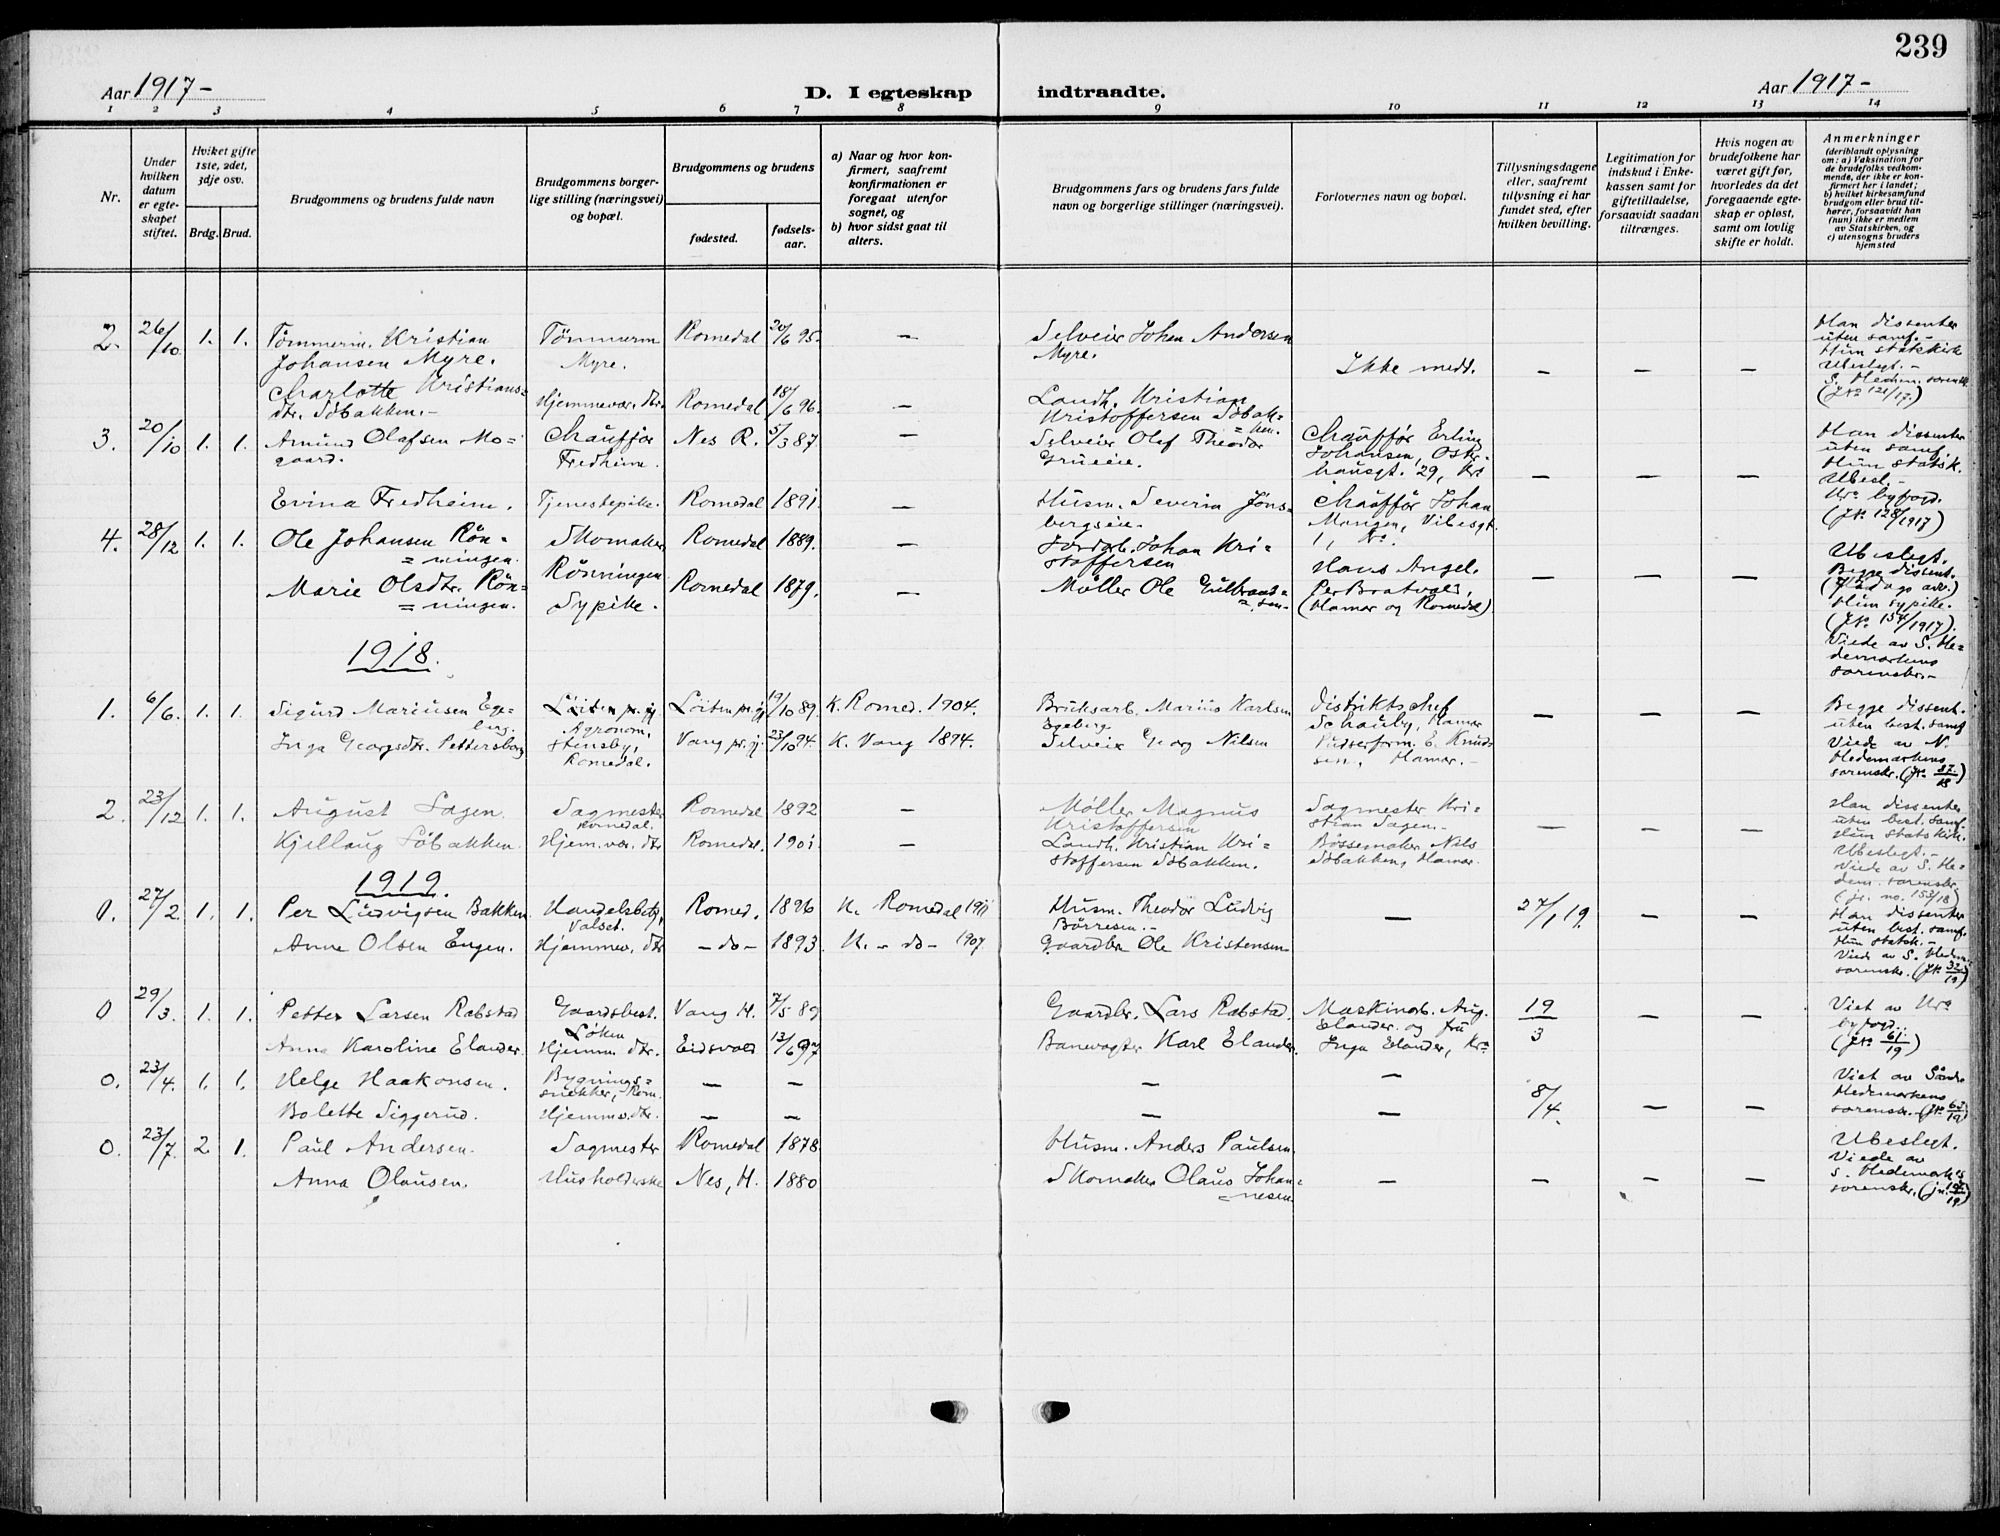 239
Aar 1917-
D. I egteskap indtraadte.
Aar 1917-
1 2 3 4 5 6 7 8 9 10 11 12 13 14
Nr.
Under hvilken datum er egteskapet stiftet.
Hviket gifte 1ste, 2det, 3dje osv.
Brdg. Brud.
Brudgommens og brudens fulde navn
Brudgommens borgerlige stilling (næringsvei) og bopæl.
Brudgommens og brudens
fødested.
fødselsaar.
a) Naar og hvor konfirmert, saafremt konfirmationen er foregaat utenfor sognet, og
b) hvor sidst gaat til alters.
Brudgommens fars og brudens fars fulde navn og borgerlige stillinger (næringsvei).
Forlovernes navn og bopæl.
Tillysningsdagene eller, saafremt tillysning ei har fundet sted, efter hvilken bevilling.
Legitimation for indskud i Enkekassen samt for giftetilladelse, forsaavidt saadan tiltrænges.
Hvis nogen av brudefolkene har været gift før, hvorledes da det foregaaende egteskap er opløst, samt om lovlig skifte er holdt.
Anmerkninger
(deriblandt oplysning om: a) Vaksination for de brudefolks vedkommende, der ikke er konfirmert her i landet; b) hvilket kirkesamfund brudgom eller brud tilhører, forsaavidt han (hun) ikke er medlem av Statskirken, og c) utensogns bruders hjemsted
2. 26/10 1. 1. Tömmerm. Kristian Johansen Myre. Tömmerm Myre. Romedal 20/6 95. — Selveier Johan Andersen Myre. Ikke medd. — — — Han dissenter uten samf. - Hun statskirk Ubeslegt. - S. Hedem. sorenskr. (J.No 121/17.)
Charlotte Kristiansdtr. Söbakken. - Hjemmevær. dtr. Romedal 18/6 96. — Landh. Kristian Kristoffersen Söbak= =ken.
3. 20/10 1. 1. Amund Olafsen Mogaard. Chauffør Fredheim. Nes R. 5/3 87. — Selveier Olef Theodor Grueeie. Chauffør Erling Johansen, Osterhausgt. 29, Kr. — — — Han dissenter uten samf. Hun statsk. Ubesl. - Kra byfogd. (J.No 128/1917)
Evina Fredheim. Tjenestepike. Romedal 1891. — Husm. Severin Jønsbergseie. Chauffør Johan Mangen, Vibesgt. 1, Kr.
4. 28/12 1. 1. Ole Johansen Rön= =ningen. Skomaker Rönningen Romedal 1889. — Jordarb. Johan Kristoffersen Hans Angel. — — — Ubeslegt. Begge dissent.
Marie Olsdtr. Rön= =ningen. Sypike. Romedal 1879. — Møller Ole Gulbrands= =sen. Per Bratvold, (Hamar og Romedal) Hun sypike. (J.No 154/1917). Viede av S. Hedemarkens sorenskr. -
1918.
1. 6/6. 1. 1. Sigurd Mariusen Egeberg. Löiten pr.gj. Agronom, Stensby, Romedal. Löiten pr.gj. 19/10 89. K. Romed. 1904. Bruksarb. Marius Karlsen Egeberg. Distriktschef Schauby, Hamar — — — Begge dissent. uten best. samf Viede av N. Hedemarkens sorenskr. (J.No 87/18)
Inga Georgsdtr. Pettersborg Vang pr. gj. 23/10 94. K. Vang 1894. Selveier Georg Nilsen Pudserform. E. Knudsen, Hamar. -
2. 23/12 1. 1. August Sagen. Sagmester Romedal. Romedal 1892 — Møller Magnus Kristoffersen Sagmester Kristian Sagen. - — — — Han dissenter uten best. samf. Hun statskirk. Ubeslegt. - Viede av S. Hedem. sorenskr. (jr. no. 153/18)
Kjellaug Söbakken. Hjem.vær. dtr Romedal. 1901 — Landh. Kristian Kristoffersen Söbakken. Bössemaker Nils Söbakken, Hamar.
1919.
0. 27/2 1. 1. Per Ludvigsen Bakken Handelsbetj. Valset. Romed. 1896 K. Romedal 1911 Husm. Theodor Ludvig Börresen. - — 27/1 19. — — Han dissenter uten best. samf. Hun statsk. - Viede av S. Hedem= sorenskr. (J.No 32/19)
Anne Olsen Engen. Hjemmev. dtr - do - 1893. K. - do - 1907 Gaardbr Ole Kristensen
0 29/3. 1. 1. Petter Larsen Rabstad Gaardsbest. Löken Vang H. 7/5 89 Gaardbr. Lars Rabstad. Maskinarb. Aug. Elander og fru 19/3 — — Viet av Kra byfogd. (J.No 61/19)
Anna Karoline Elander Hjemmev. dtr. Eidsvold 13/6 97 Banevogter Karl Elander. Inga Elander, Kra
0. 23/4. 1. 1. Helge Haakonsen. Bygningssnekker, Rom. — — — — 8/4. — — Viet av Söndre Hedemarkens sorenskr. (J.No 62/19)
Bolette Siggerud. Hjemmv. dtr. — — — —
0. 23/7. 2 1. Paul Andersen. Sagmester Romedal 1878. Husm. Anders Paulsen. Ubeslegt. Viede av S. Hedemarkens sorenskr.
Anna Olausen. Husholderske Nes, H. 1880 Skomaker Olaus Johan= =nesen — — — —